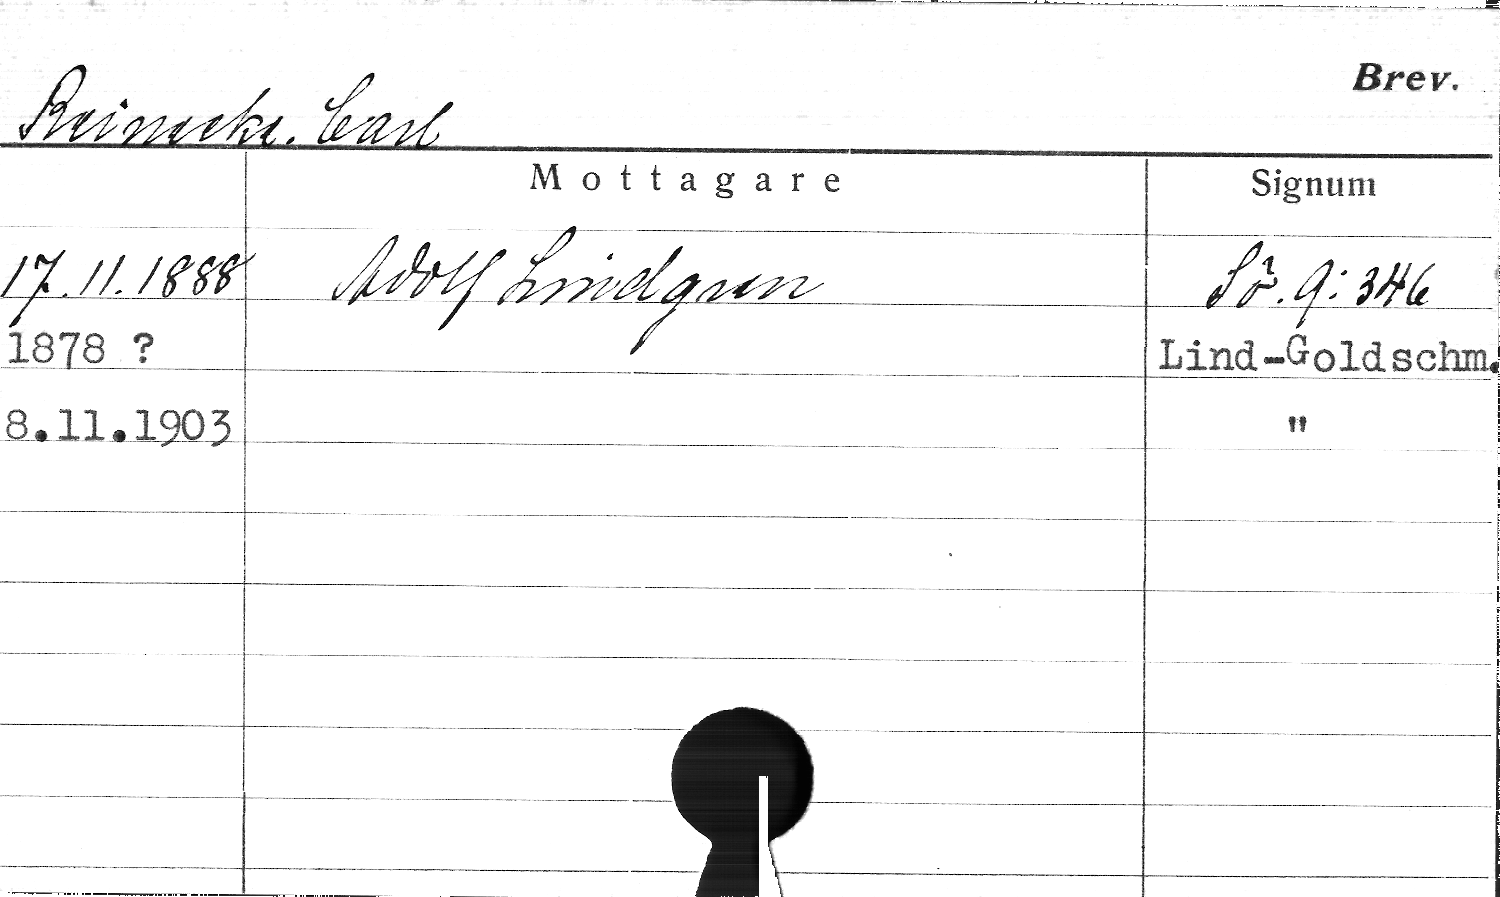 Brev.
Reinecke. Carl
Mottagare Signum
17.11.1888 Adolf Lindgren 9:346
1878 ? Lind-Goldschm.
8.11.1903 "